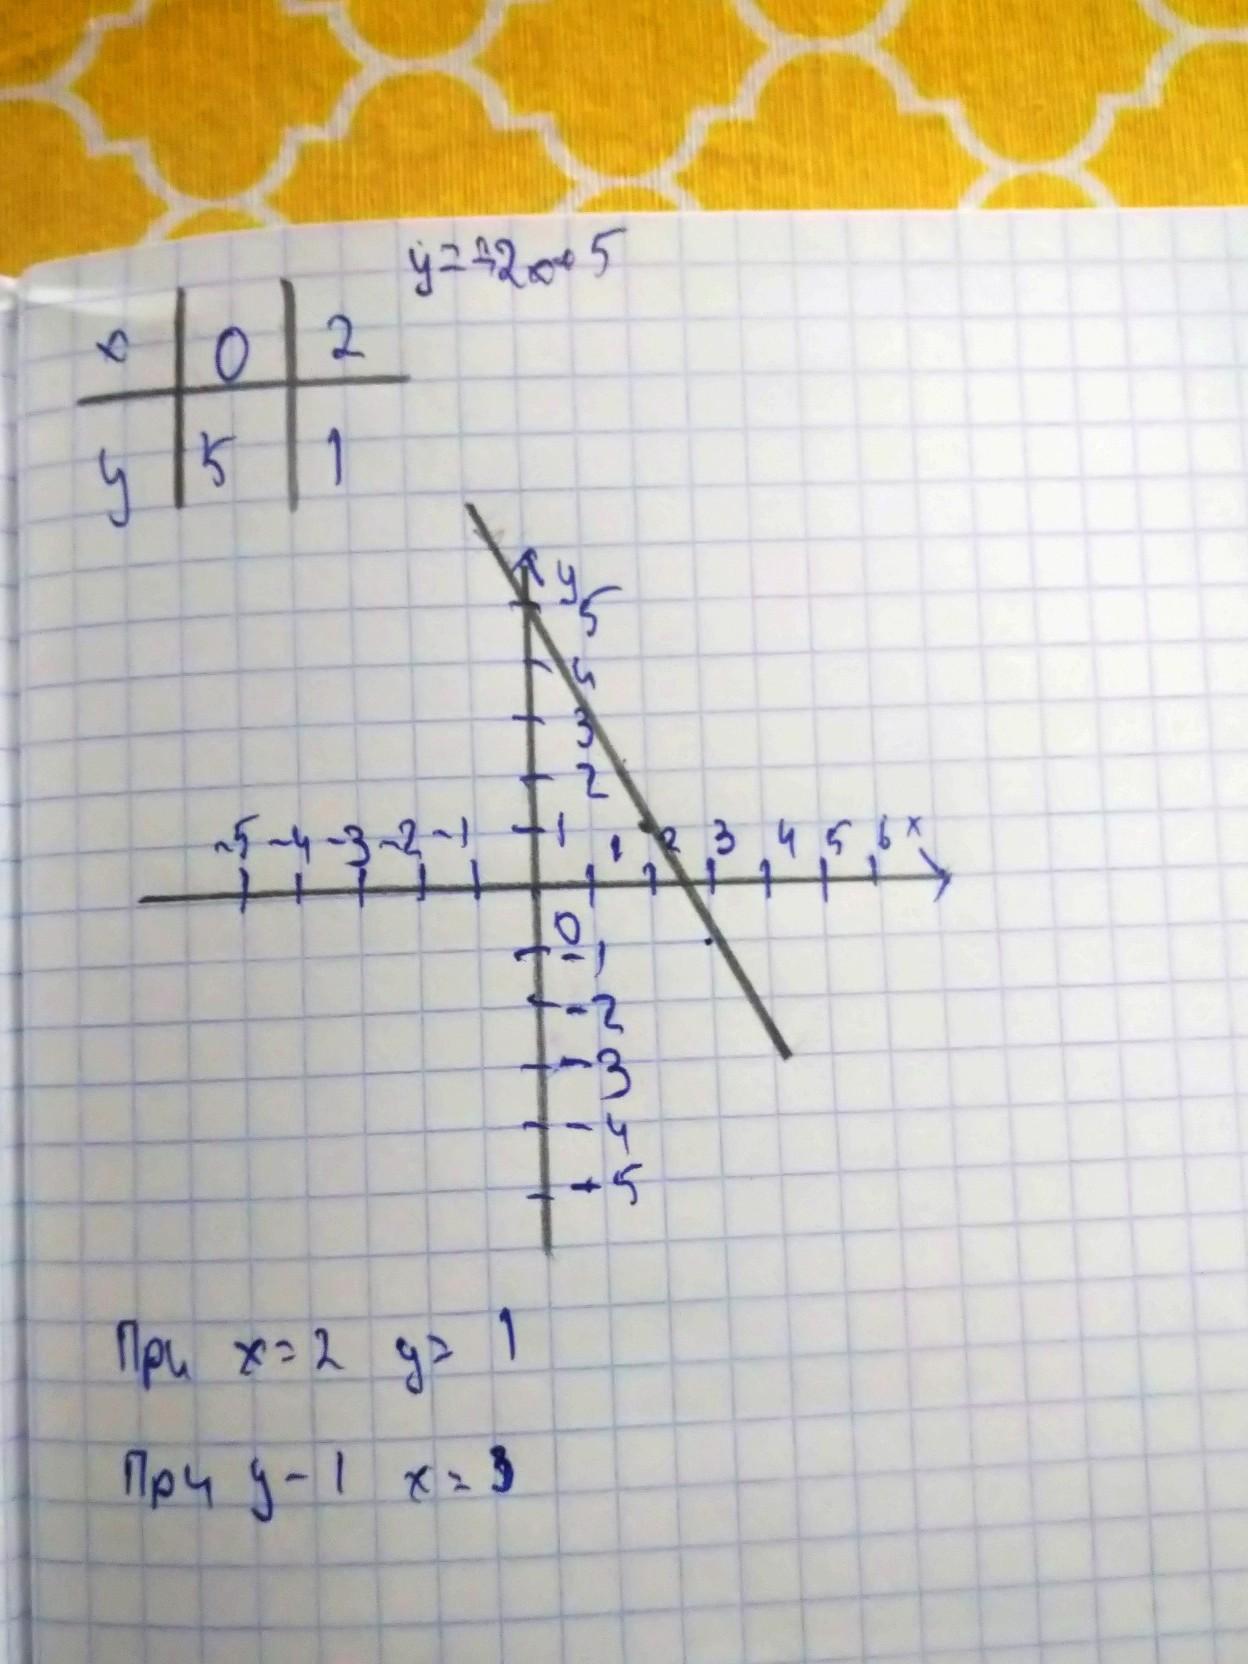 y = -2x+5
x 0 2
y 5 1
y
5
4
3
2
1
-5 -4 -3 -2 -1 1 2 3 4 5 6 x
0
-1
-2
-3
-4
-5
При x=2 y= 1
При y-1 x=3